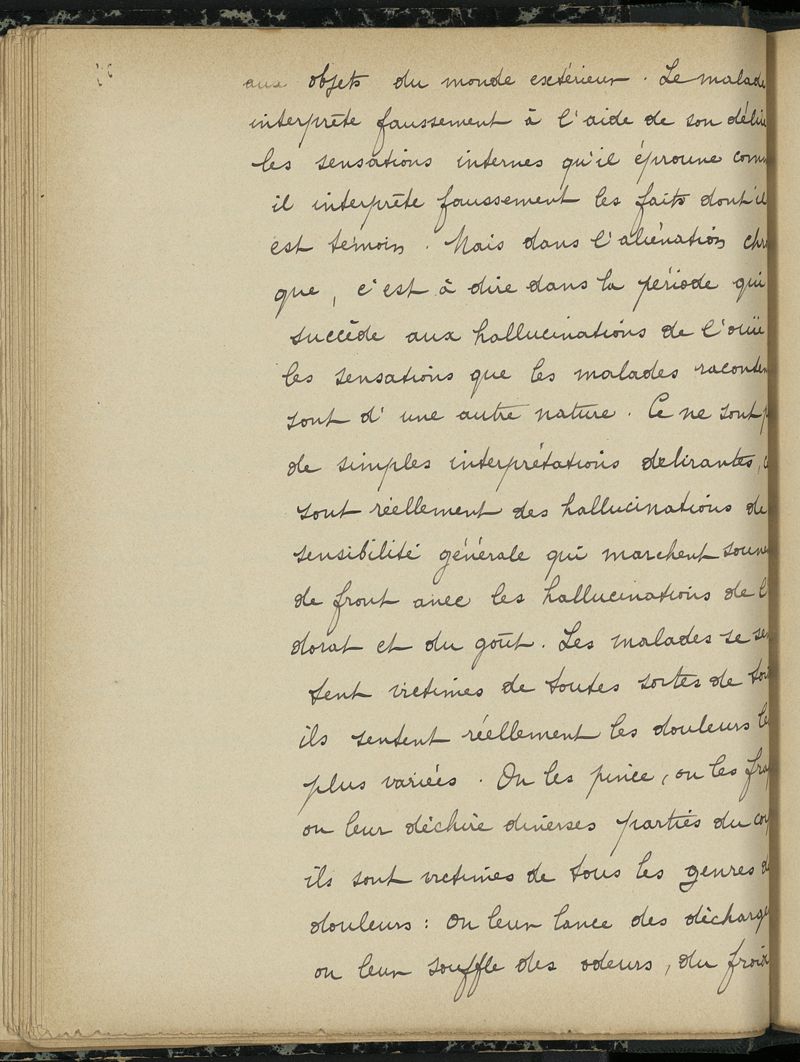 aux objets du monde extérieur. Le malade
interprète faussement à l'aide de son délire
les sensations internes qu'il éprouve comm
il interprète faussement les faits dont il
est témoin. Mais dans l'aliénation chro
que, c'est à dire dans la période qui
succède aux hallucinations de l'ouïe
les sensations que les malades raconten
sont d'une autre nature. Ce ne sont p
de simples interprétations delirantes, c
sont réellement des hallucinations de
sensibilité générale qui marchent souve
de front avec les hallucinations de l
dorat et du goût. Les malades se sen
tent victimes de toutes sortes de tor
ils sentent réellement les douleurs le
plus variées. On les pince, on les frap
on leur déchire diverses parties du cor
ils sont victimes de tous les genres d
douleurs : on leur lance des décharge
on leur souffle des odeurs, du froid